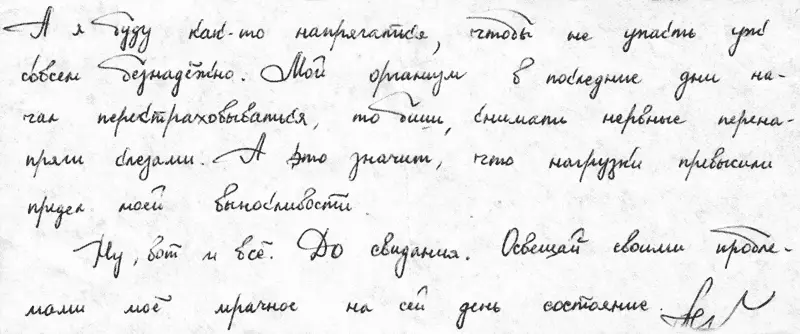 А я буду как-то напрягаться, чтобы не упасть уж
совсем безнадёжно. Мой организм в последние дни на-
чал перестраховываться, то биш, снимать нервные перена-
пряги слезами. А это значит, что нагрузки превысили
предел моей выносливости
Ну, вот и всё. До свидания. Освещай своими пробле-
мами моё мрачное на сей день состояние.